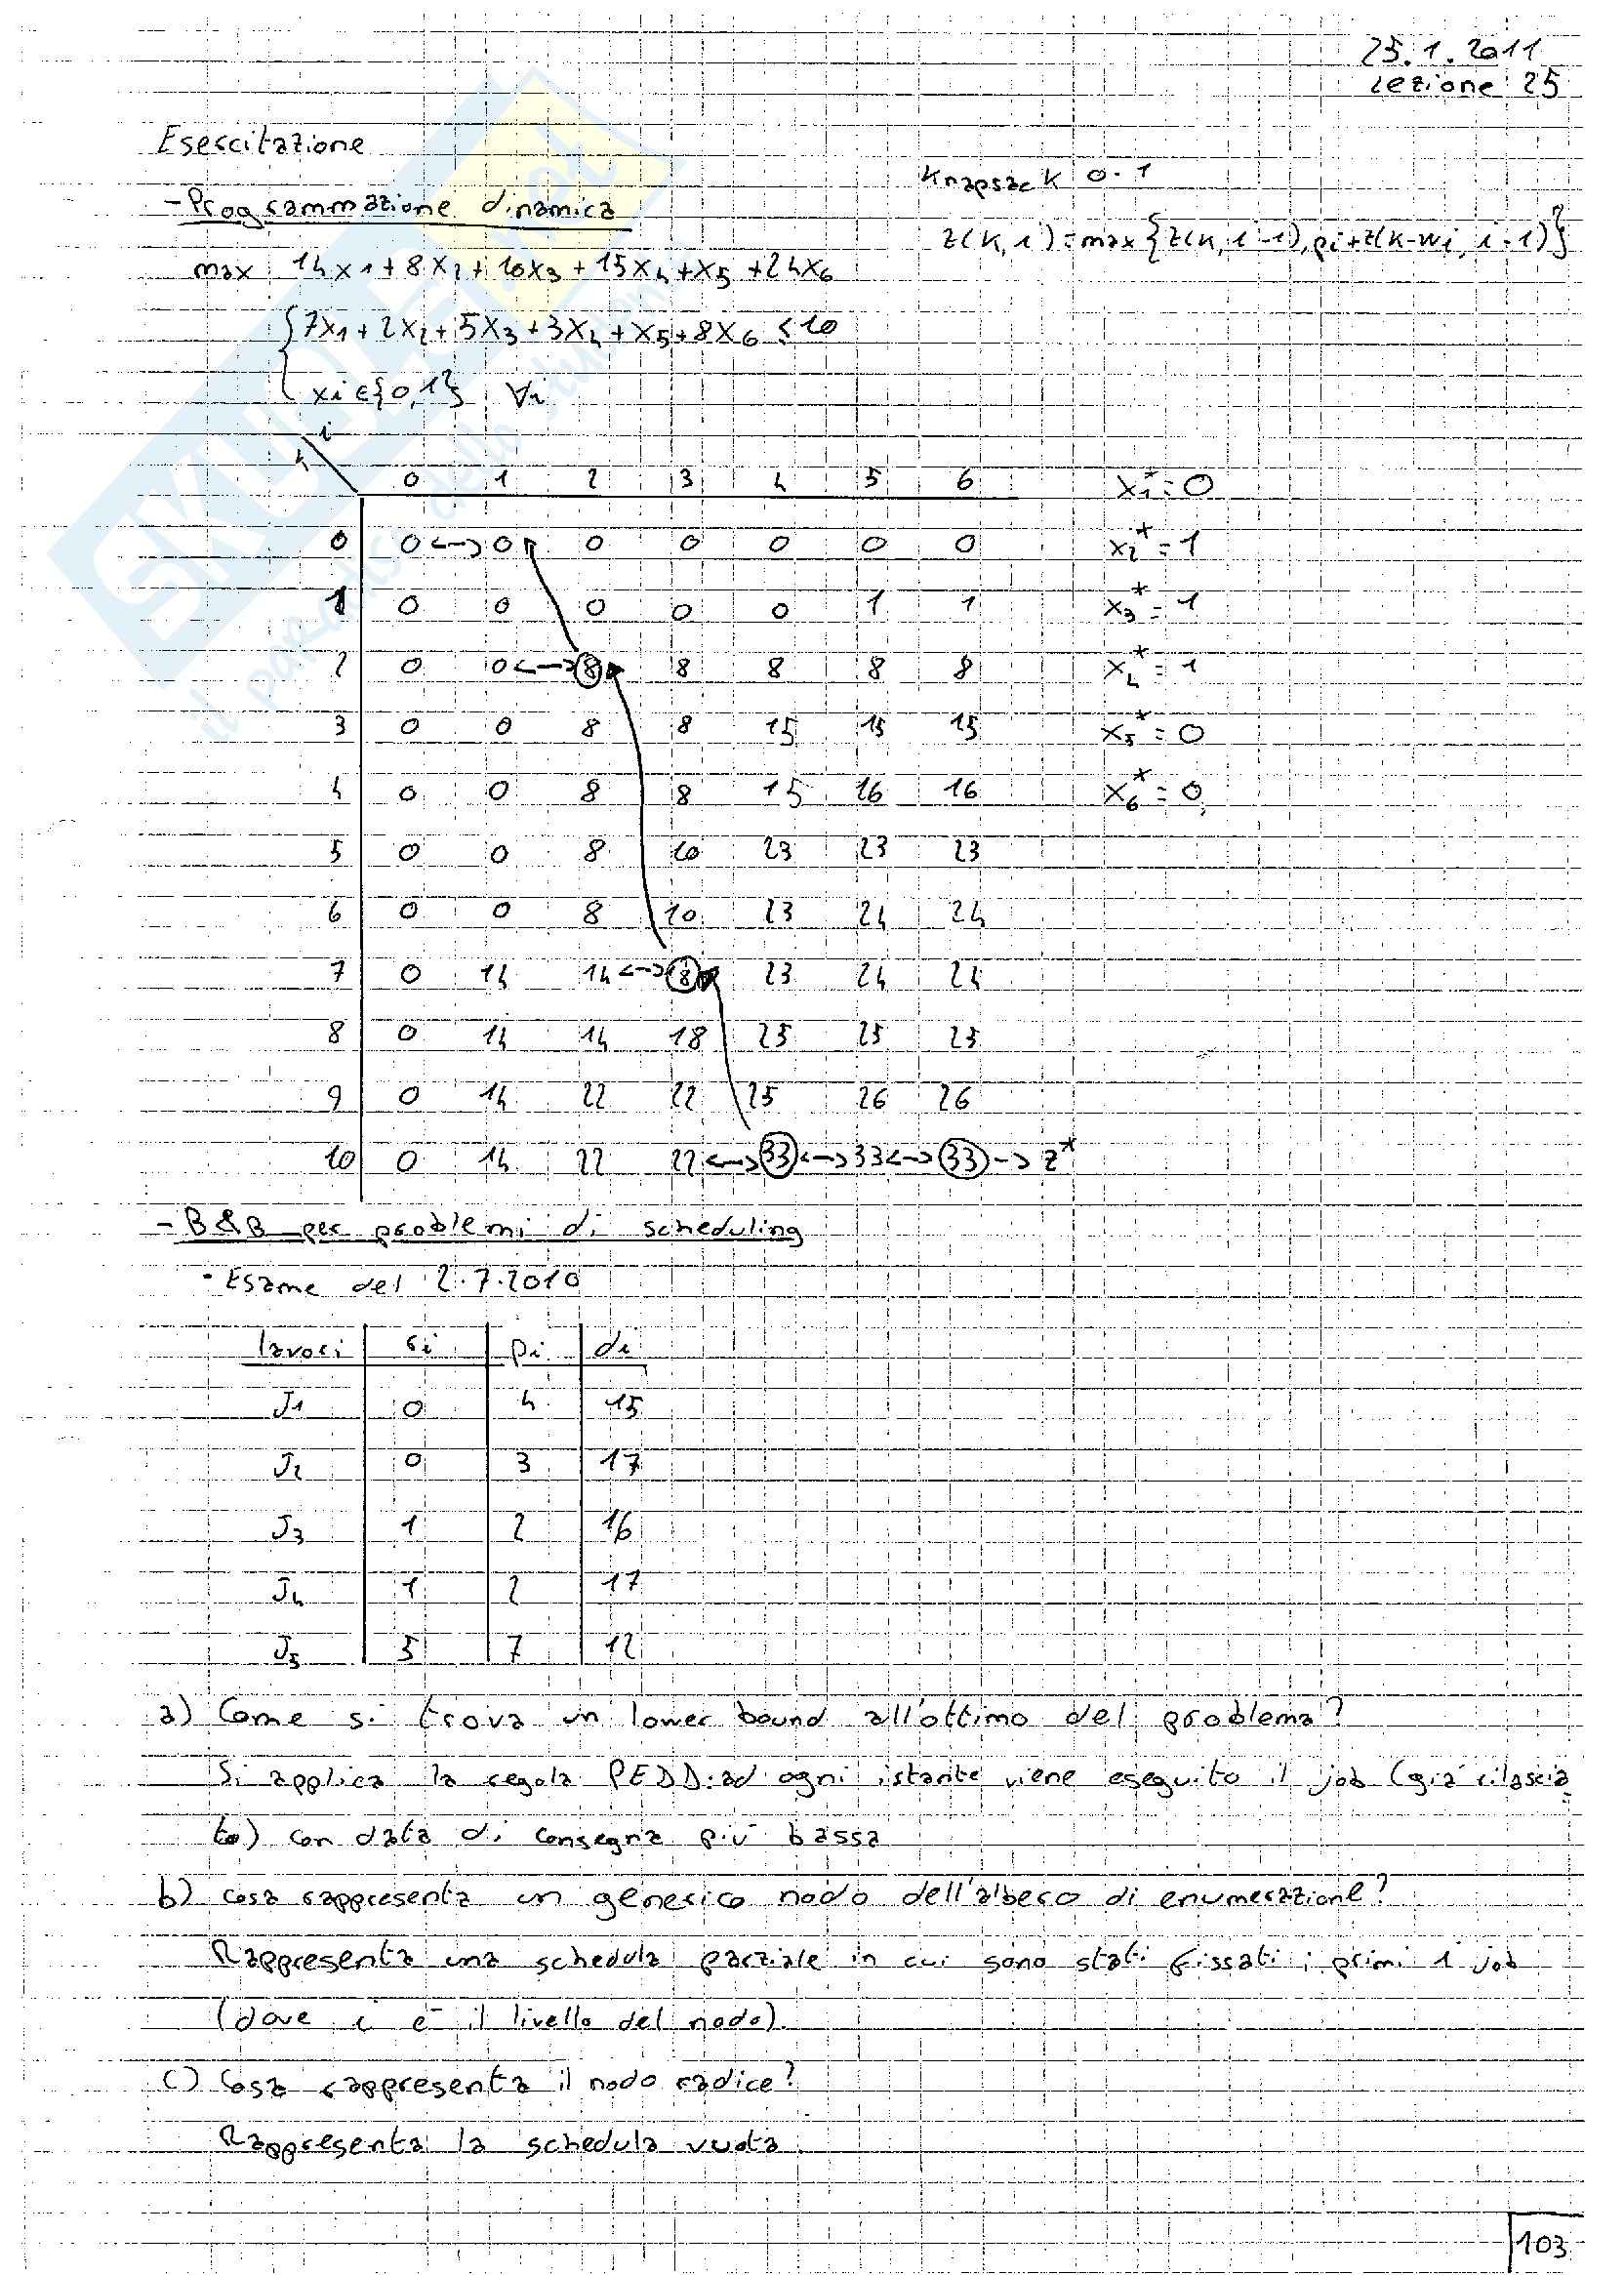 25.1.2011
Lezione 25
Esercitazione
Knapsack 0-1
- Programmazione dinamica
z(k,i)=max{z(k,i-1),pi+z(k-wi,i-1)}
max 14x1+8x2+10x3+15x4+x5+24x6
7x1+2x2+5x3+3x4+x5+8x6≤10
xi∈{0,1} ∀i
i
k
0 1 2 3 4 5 6 x1*=0
0 0<->0 0 0 0 0 0 x2*=1
1 0 0 0 0 0 1 1 x3*=1
2 0 0<->8 8 8 8 8 x4*=1
3 0 0 8 8 15 15 15 x5*=0
4 0 0 8 8 15 16 16 x6*=0
5 0 0 8 10 23 23 23
6 0 0 8 10 23 24 24
7 0 14 14<->18 23 24 24
8 0 14 14 18 25 25 25
9 0 14 22 22 25 26 26
10 0 14 22 22<->33<->33<->33-> z*
- B&B per problemi di scheduling
· Esame del 2.7.2010
lavori ri pi di
J1 0 4 15
J2 0 3 17
J3 1 2 16
J4 1 2 17
J5 5 7 12
a) Come si trova un lower bound all'ottimo del problema?
Si applica la regola PEDD: ad ogni istante viene eseguito il job (già rilascia
to) con data di consegna più bassa
b) Cosa rappresenta un generico nodo dell'albero di enumerazione?
Rappresenta una schedula parziale in cui sono stati fissati i primi i job
(dove i è il livello del nodo).
c) Cosa rappresenta il nodo radice?
Rappresenta la schedula vuota.
103
SKUOLA.net
il paradiso dello studente